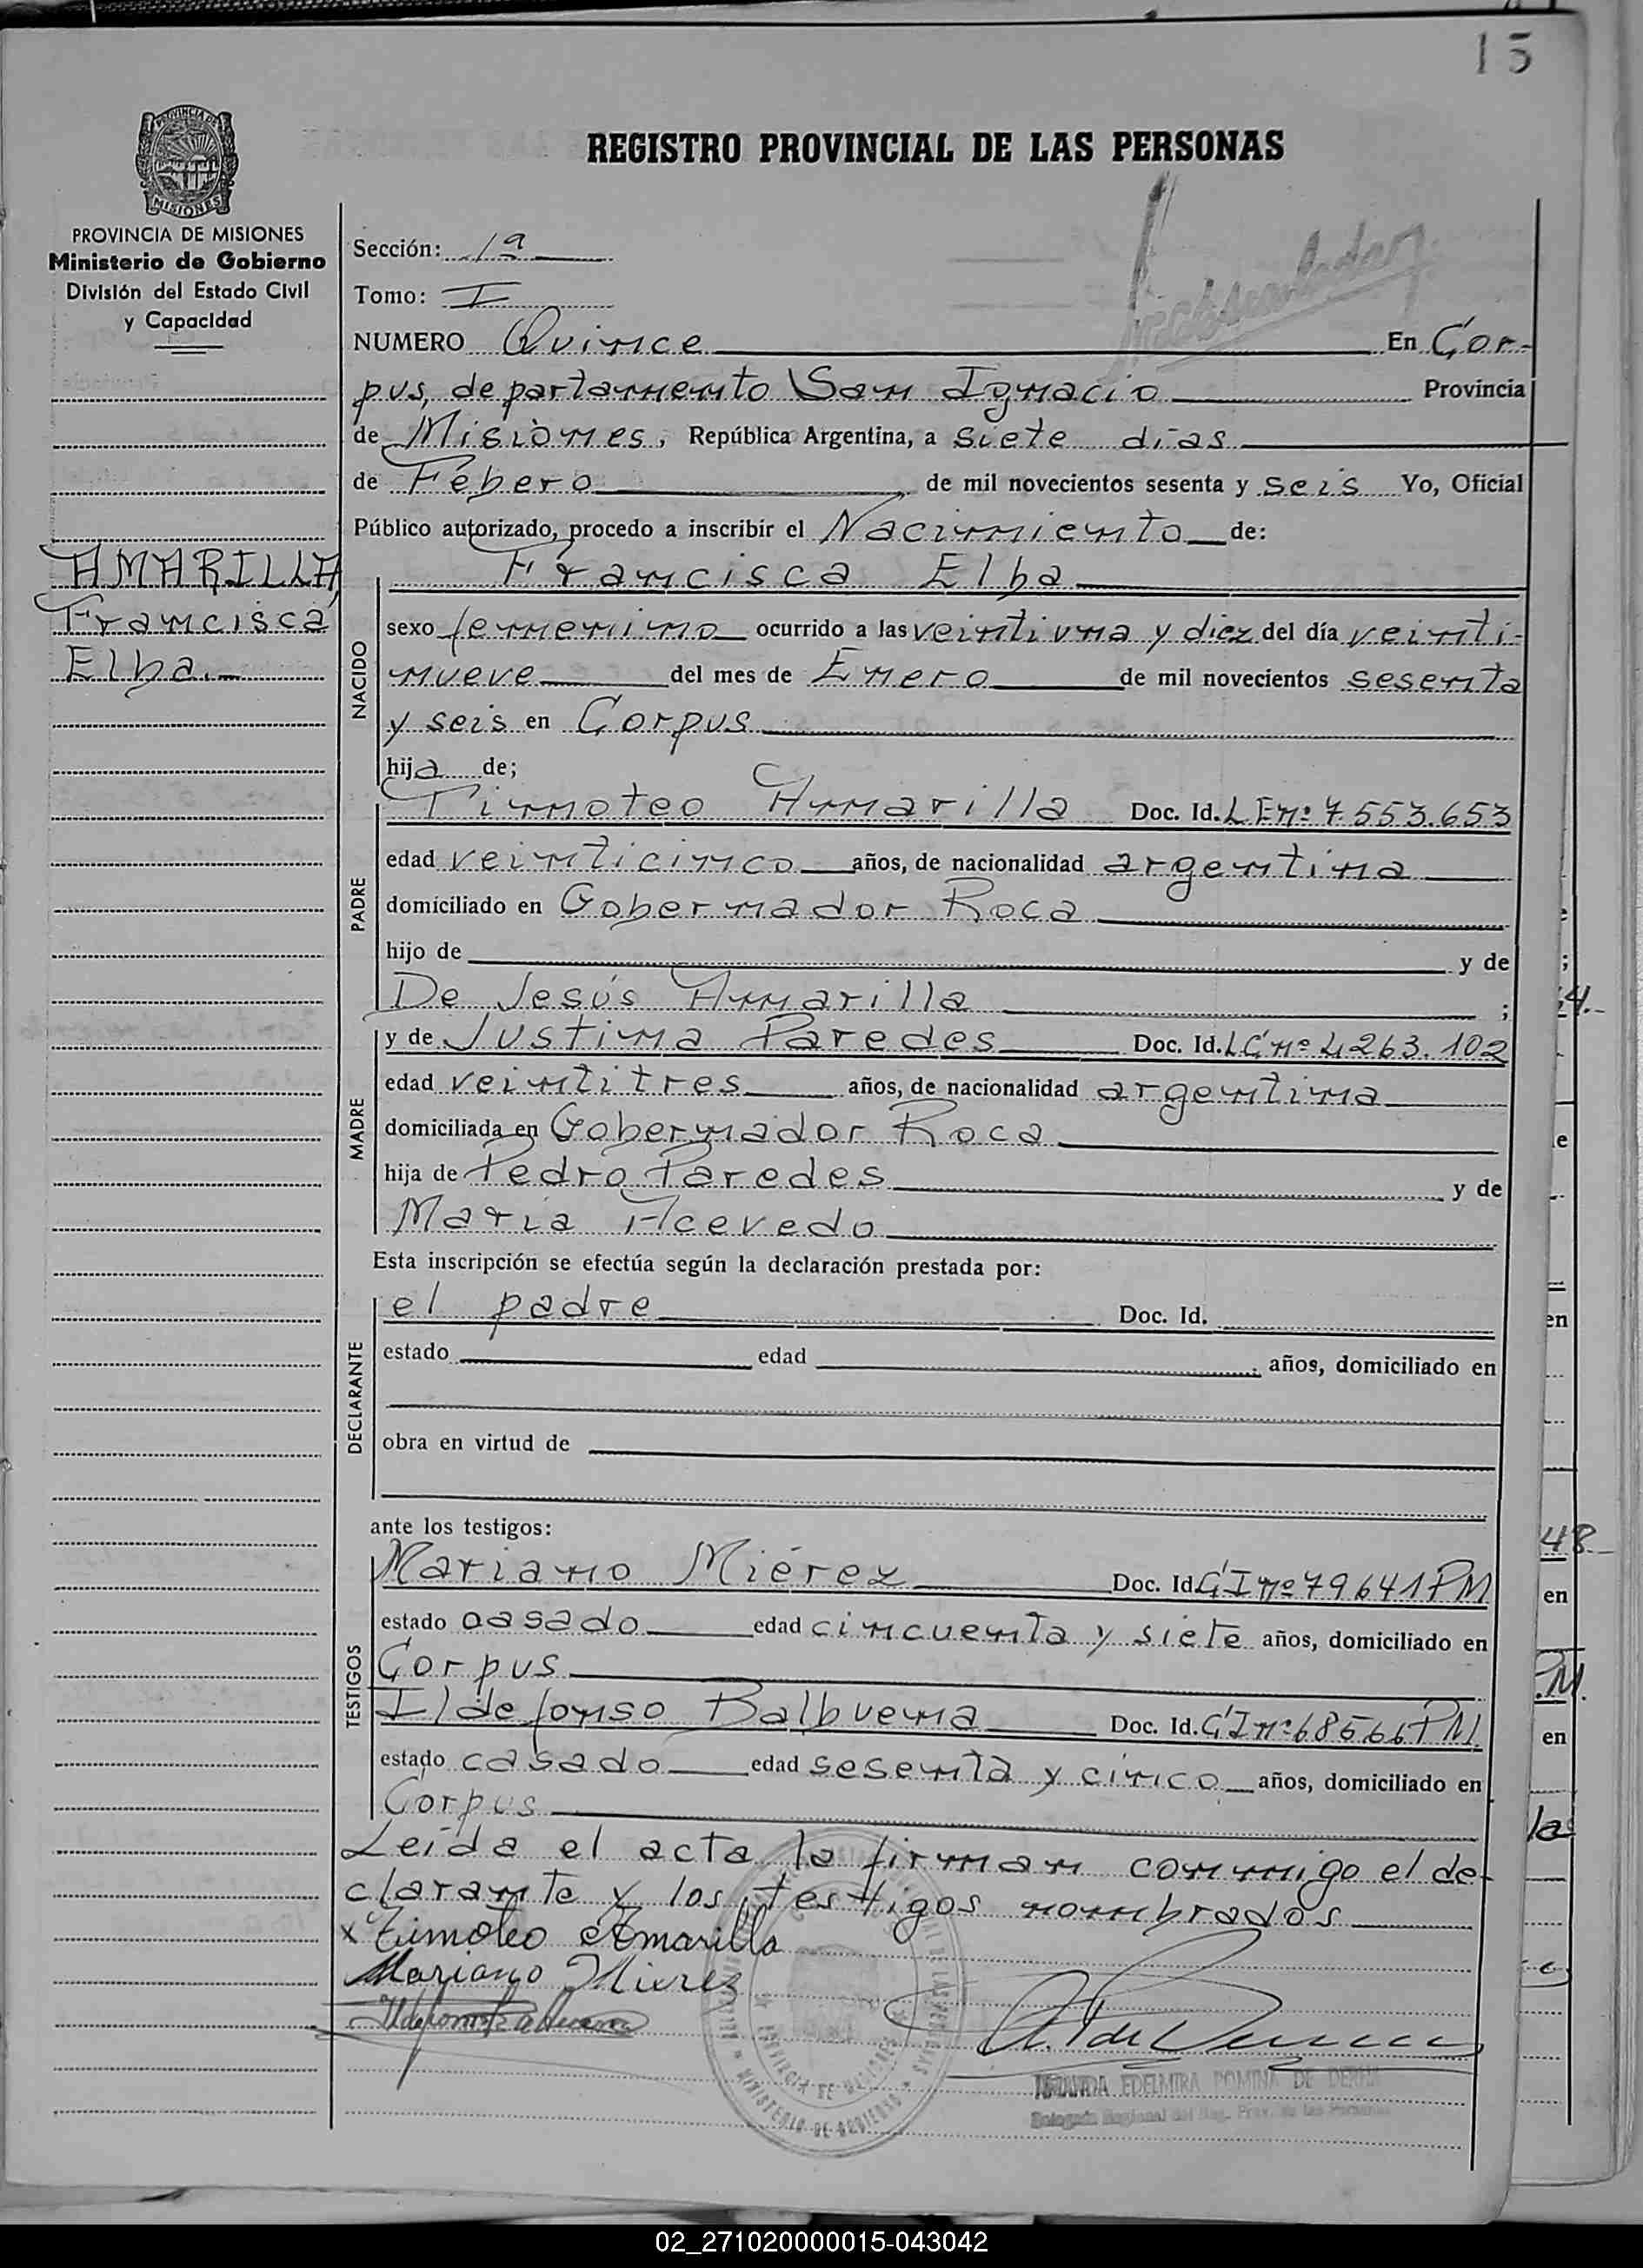 15
REGISTRO PROVINCIAL DE LAS PERSONAS
PROVINCIA DE
MISIONES
PROVINCIA DE MISIONES
Ministerio de Gobierno
División del Estado Civil
y Capacidad
AMARILLA,
Francisca
Elba.
Sección: 1ª
Tomo: I
NUMERO Quince En Cor-
pus, departamento San Ignacio Provincia
de Misiones, República Argentina, a siete días
de Febero de mil novecientos sesenta y seis Yo, Oficial
Público autorizado, procedo a inscribir el Nacimiento de:
NACIDO
Francisca Elba
sexo femenino ocurrido a las veintiuna y diez del día veinti-
nueve del mes de Enero de mil novecientos sesenta
y seis en Corpus
hija de;
PADRE
Timoteo Amarilla Doc. Id. LE nº 7.553.653
edad veinticinco años, de nacionalidad argentina
domiciliado en Gobernador Roca
hijo de y de
De Jesús Amarilla ;
MADRE
y de Justina Paredes Doc. Id. LC nº 4263.102
edad veintitres años, de nacionalidad argentina
domiciliada en Gobernador Roca
hija de Pedro Paredes y de
Maria Acevedo
Esta inscripción se efectúa según la declaración prestada por:
DECLARANTE
el padre Doc. Id.
estado edad años, domiciliado en
obra en virtud de
ante los testigos:
TESTIGOS
Mariano Miérez Doc. Id. CI nº 79641 PM
estado casado edad cincuenta y siete años, domiciliado en
Corpus
Ildefonso Balbuena Doc. Id. CI nº 68566 PM.
estado casado edad sesenta y cinco años, domiciliado en
Corpus
Leida el acta la firman conmigo el de-
clarante y los testigos nombrados
x Timoteo Amarilla
Mariano Mierez
Ildefonso Balbuena
EDELMIRA ROMINA DE
Delegada Regional del Reg. Prov. de las Personas
MINISTERIO DE GOBIERNO
PROVINCIA DE MISIONES
4.-
e
en
48.-
en
PM.
en
la
02_271020000015-043042